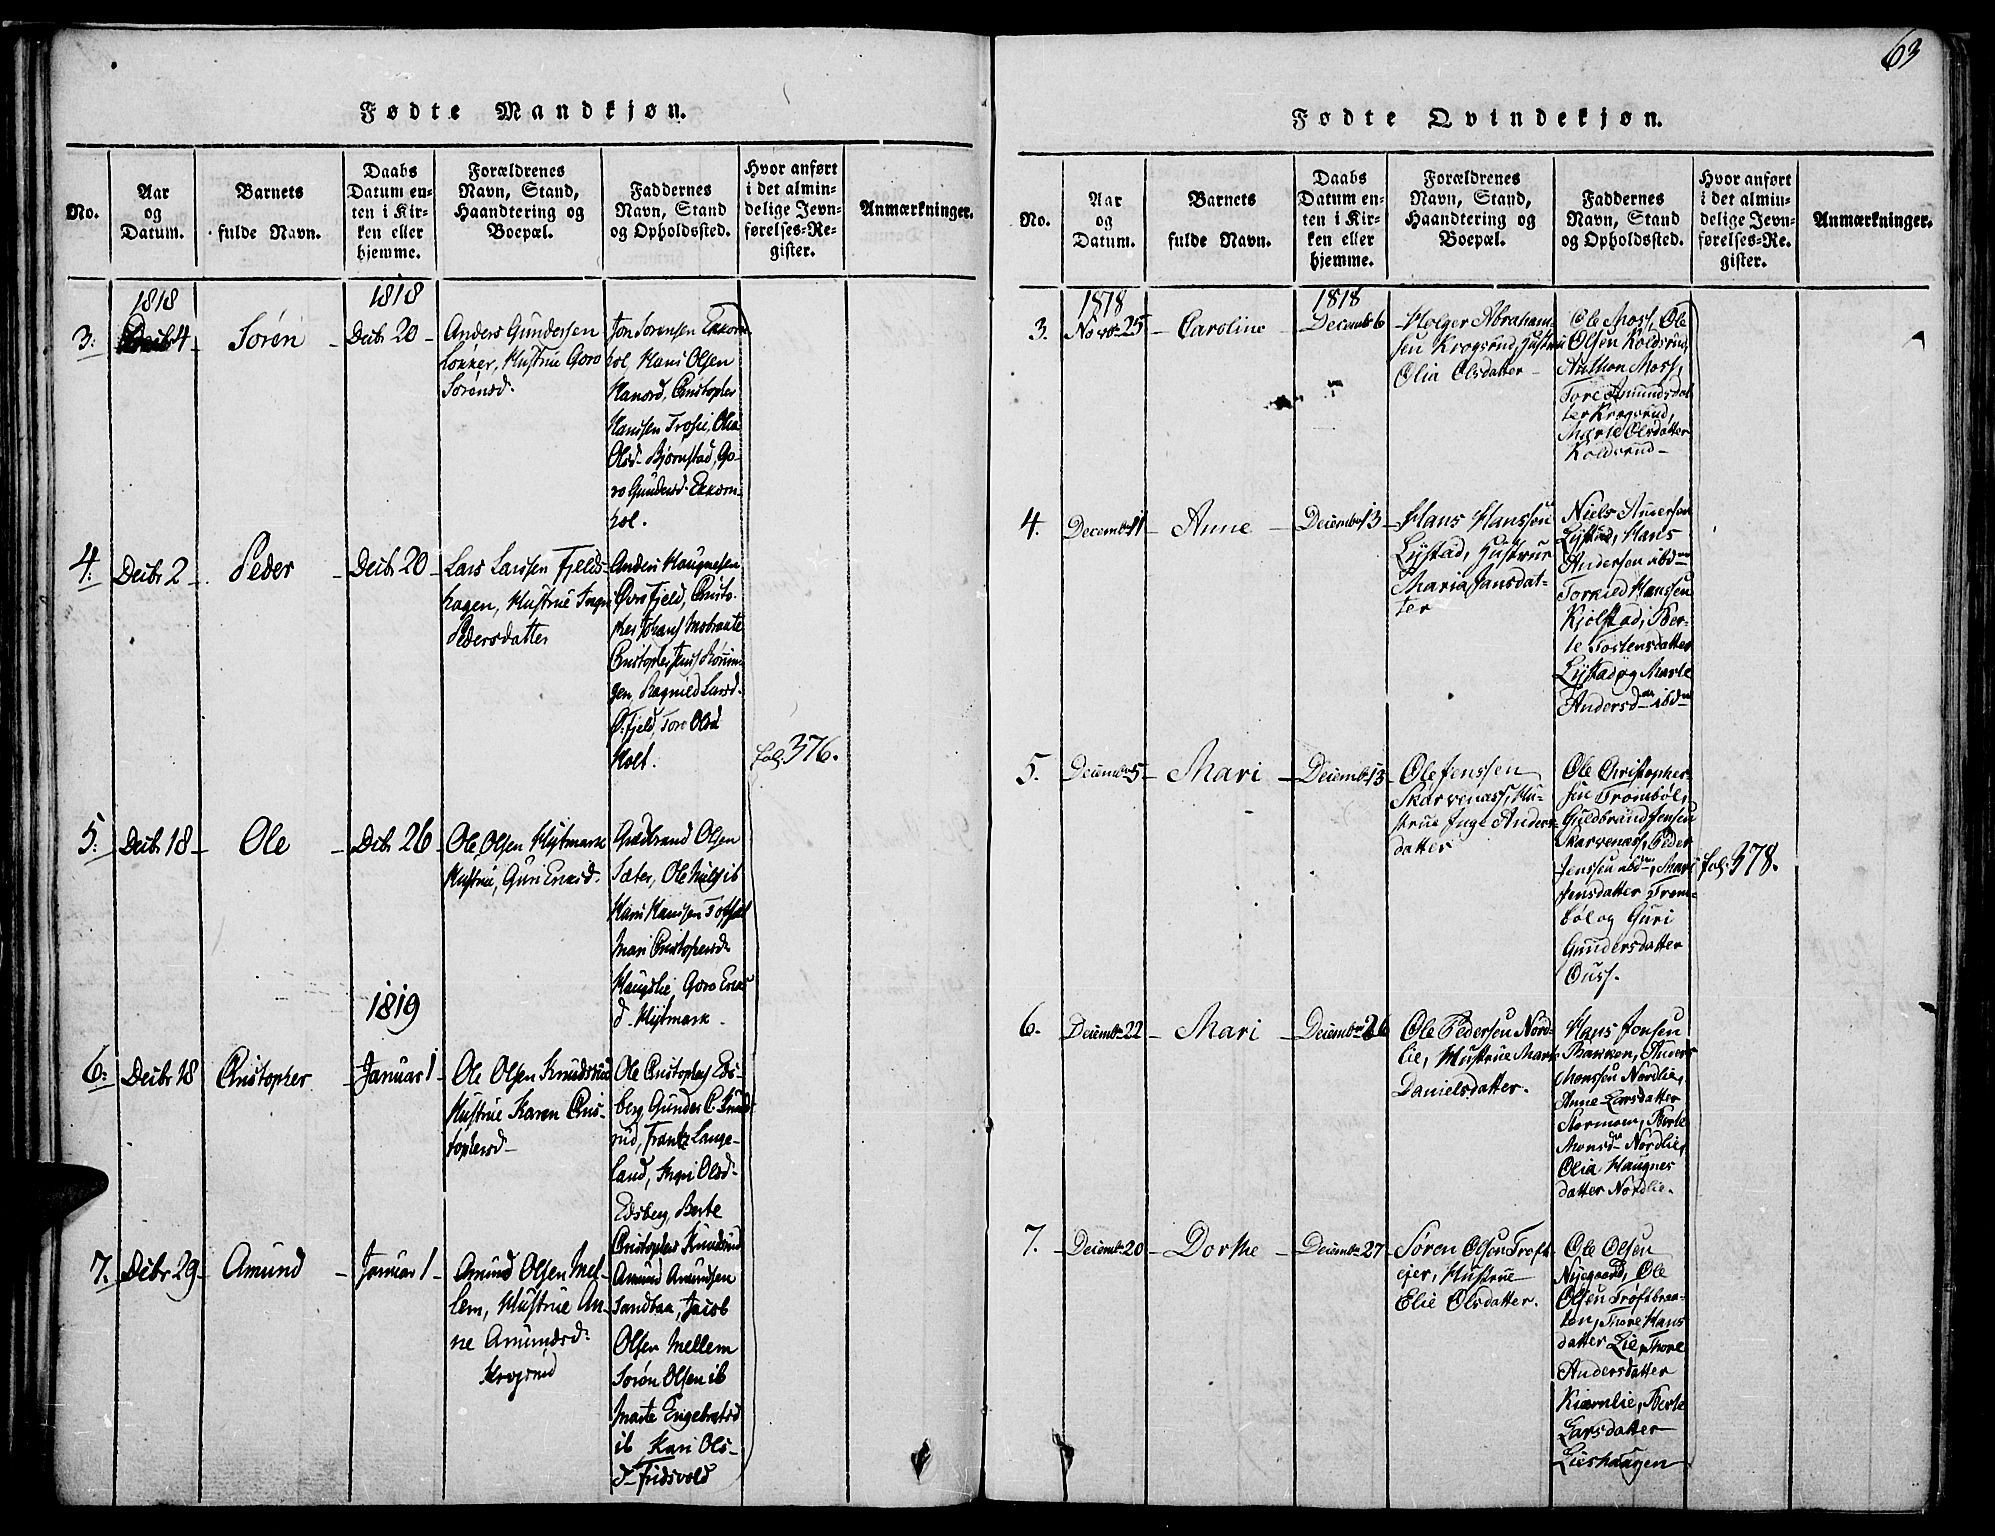 63
Fødte Mandkjøn.
No.
Aar
og
Datum.
Barnets
fulde Navn.
Daabs
Datum en-
ten i Kir-
ken eller
hjemme.
Forældrenes
Navn, Stand,
Haandtering og
Boepæl.
Faddernes
Navn, Stand
og Opholdssted.
Hvor anført
i det almin-
delige Jevn-
førelses-Re-
gister.
Anmærkninger.
1818
1818
3.
Decbr 4
Søren
Decbr 20
Anders Gundersen
Løkker, Hustrue Goro
Sørensd.
Jon Sørensen Ekorn-
hol, Hans Olsen
Hanord, Christopher
Hanssen Trosie, Olia
Olsd. Bjørnstad, Go-
ro Gundersd. Ekorn-
hol.
4.
Decbr 2
Peder
Decbr 20
Lars Larssen Fjelds-
hagen, Hustrue Ingri
Pedersdatter
Anders Haugnesen
Øvre Fjeld, Christo-
pher Johans Mobraate
Christopher Jens Rønnin-
gen, Ragnild Larsd.
Ø. Fjeld, Tore Olsd
Holt.
fol. 376.
5.
Decbr 18
Ole
Decbr 26
Ole Olsen Hytmark
Hustrue, Guri Ericsd.
Guldbrand Olsen
Sæter, Ole Niels ib
Hans Hanssen
Mari Christophersd.
Haugslie, Goro Erics
d. Hytmark.
1819
6.
Decbr 18
Christopher
Januar 1
Ole Olsen Knudsrud
Hustrue Karen Chris-
tophersd.
Ole Christophers Eds-
berg, Gunder C.
rud, Frantz Lange-
land, Ingri Olsd.
Edsberg, Berte
Christophers Knudsrud
7.
Decbr 29
Amund
Januar 1
Amund Olsen Mel-
lem, Hustrue An-
ne Amundsd.
Krogsrud
Amund Amundsen
Sandbaa, Jacob
Olsen Mellem
Søren Olsen ib
Marte Engebretsd
ib Kari Ols-
d. Fridsvold
Fødte Qvindekjøn.
No.
Aar
og
Datum.
Barnets
fulde Navn.
Daabs
Datum en-
ten i Kir-
ken eller
hjemme.
Forældrenes
Navn, Stand,
Haandtering og
Boepæl.
Faddernes
Navn, Stand
og Opholdssted.
Hvor anført
i det almin-
delige Jevn-
førelses-Re-
gister.
Anmærkninger.
1818
1818
3.
Novbr 25
Caroline
Decembr 6
Holger Abraham-
sen Krogsrud, Hustrue
Olia Olsdatter
Ole Moss, Ole
Olsen Koldsrud,
Anthon Moss,
Tore Amundsdat-
ter Krogsrud,
Marie Olsdatter
Koldsrud
4.
Decembr 11
Anne
Decembr 13
Hans Hanssen
Lystad, Hustrue
Maria Jansdat-
ter
Niels Andersen
Lystad, Hans
Andersen ibdm
Torkild Hanssen
Kjølstad, Ber-
te Tostensdatter
Lystad og Marte
Andersd. ibdm
5.
Decembr 5
Mari
Decembr 13
Ole Jenssen
Skarvenæss, Hu-
strue Inge Anders-
datter
Ole Christopher-
sen Trømbøl,
Guldbrand Jensen
Skarvenæs, Peder
Jenssen ibdm, Mari
Jensdatter Trøm-
bøl og Guri
Gundersdatter
Ouss.
fol. 378.
6.
Decembr 22
Mari
Decembr 26
Ole Pedersen Nord-
lie, Hustrue Mari
Danielsdatter.
Hans Jonsen
Bakken, Anders
Monssen Nordlie,
Anne Larsdatter
Stormoen, Berte
Monsd. Nordlie,
Olia Haugnes
datter Nordlie.
7.
Decembr 20
Dorthe
Decembr 27
Søren Olsen Troft-
ejer, Hustrue
Elie Olsdatter.
Ole Olsen
Nyegaard, Ole
Olsen Troftbraa-
ten, Thore Hans
datter Lie, Thore
Andersdatter
Kiærnlie, Berte
Larsdatter
Lieshaugen